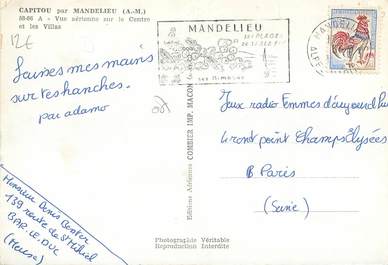 CAPITOU par MANDELIEU (A.-M.)
58-86 A - Vue aérienne sur le Centre
et les Villas
12€
Laisses mes mains
sur tes hanches.
par adamo
Monsieur Denis Center
139 route de St Mihiel
BAR. LE. DUC
(Meuse)
Editions Aériennes COMBIER IMP. MACON
Photographie Véritable
Reproduction Interdite
MANDELIEU
SES PLAGES
SES MIMOSAS
MANDELIEU
Jeux radio Femmes d'aujourd'hui
4 rond point Champs Elysées
8 Paris
(Seine)